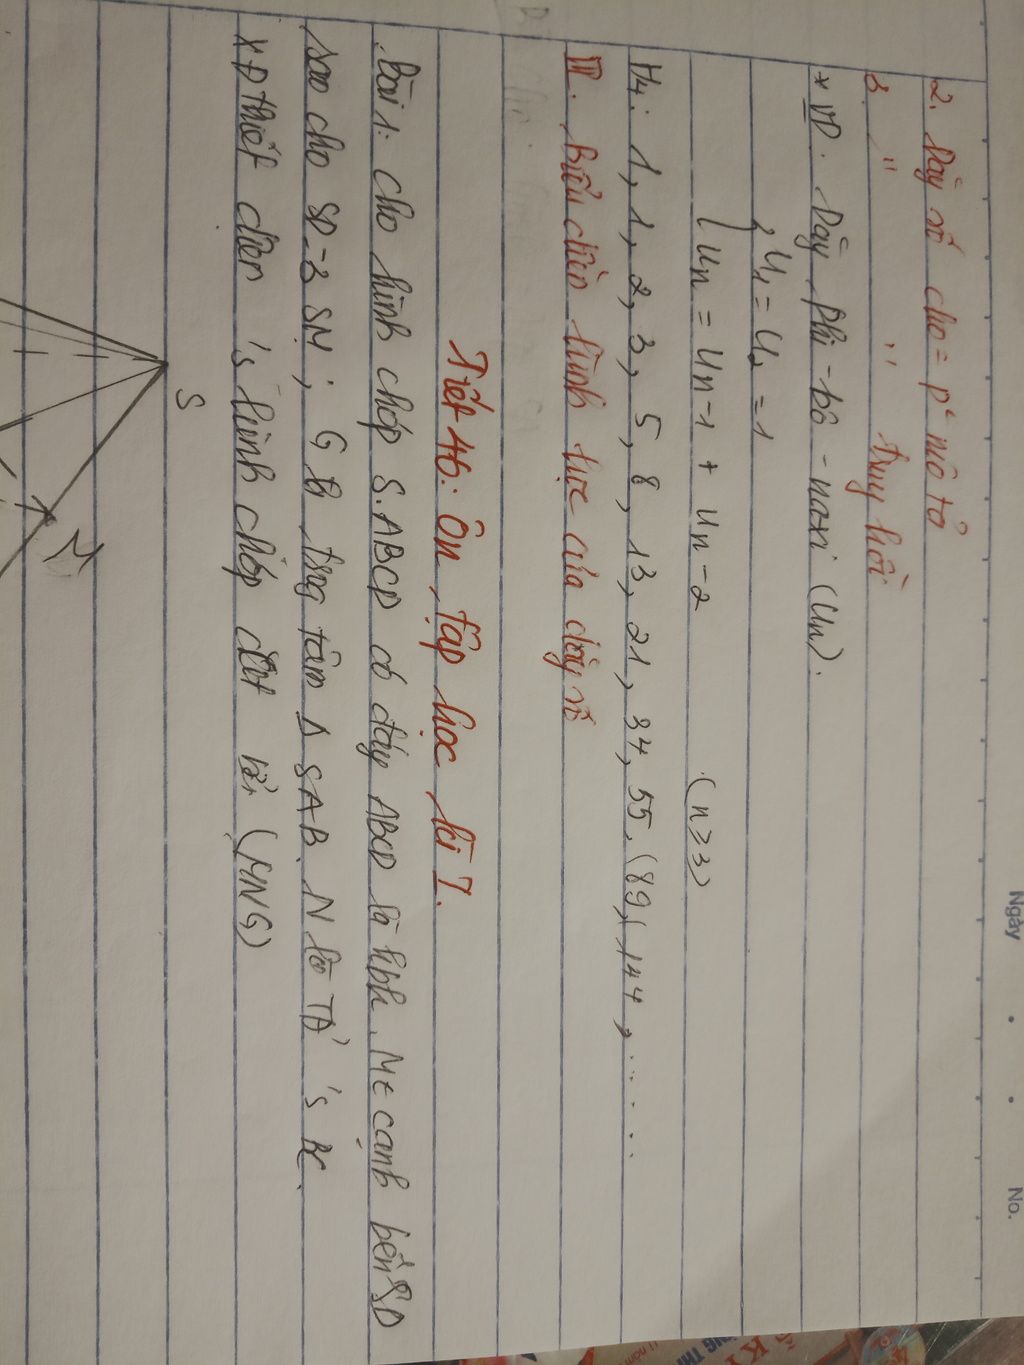 Ngày No.
2. Dãy số cho = p² mô tả
3. " " truy hồi
* VD. Dãy Phi-bô-naxi (Un).
U1 = U2 = 1
Un = Un-1 + Un-2 (n≥3)
H4: 1, 1, 2, 3, 5, 8, 13, 21, 34, 55, (89, (144, .....
III. Biểu diễn hình học của dãy số
Tiết 46: Ôn tập học kì I.
Bài 1: cho hình chóp S.ABCD có đáy ABCD là hbh. M∈ cạnh bên SD
sao cho SD=3 SM; G là trọng tâm Δ SAB. N là TĐ 's BC.
XĐ thiết diện 's hình chóp cắt bởi (MNG)
S
M